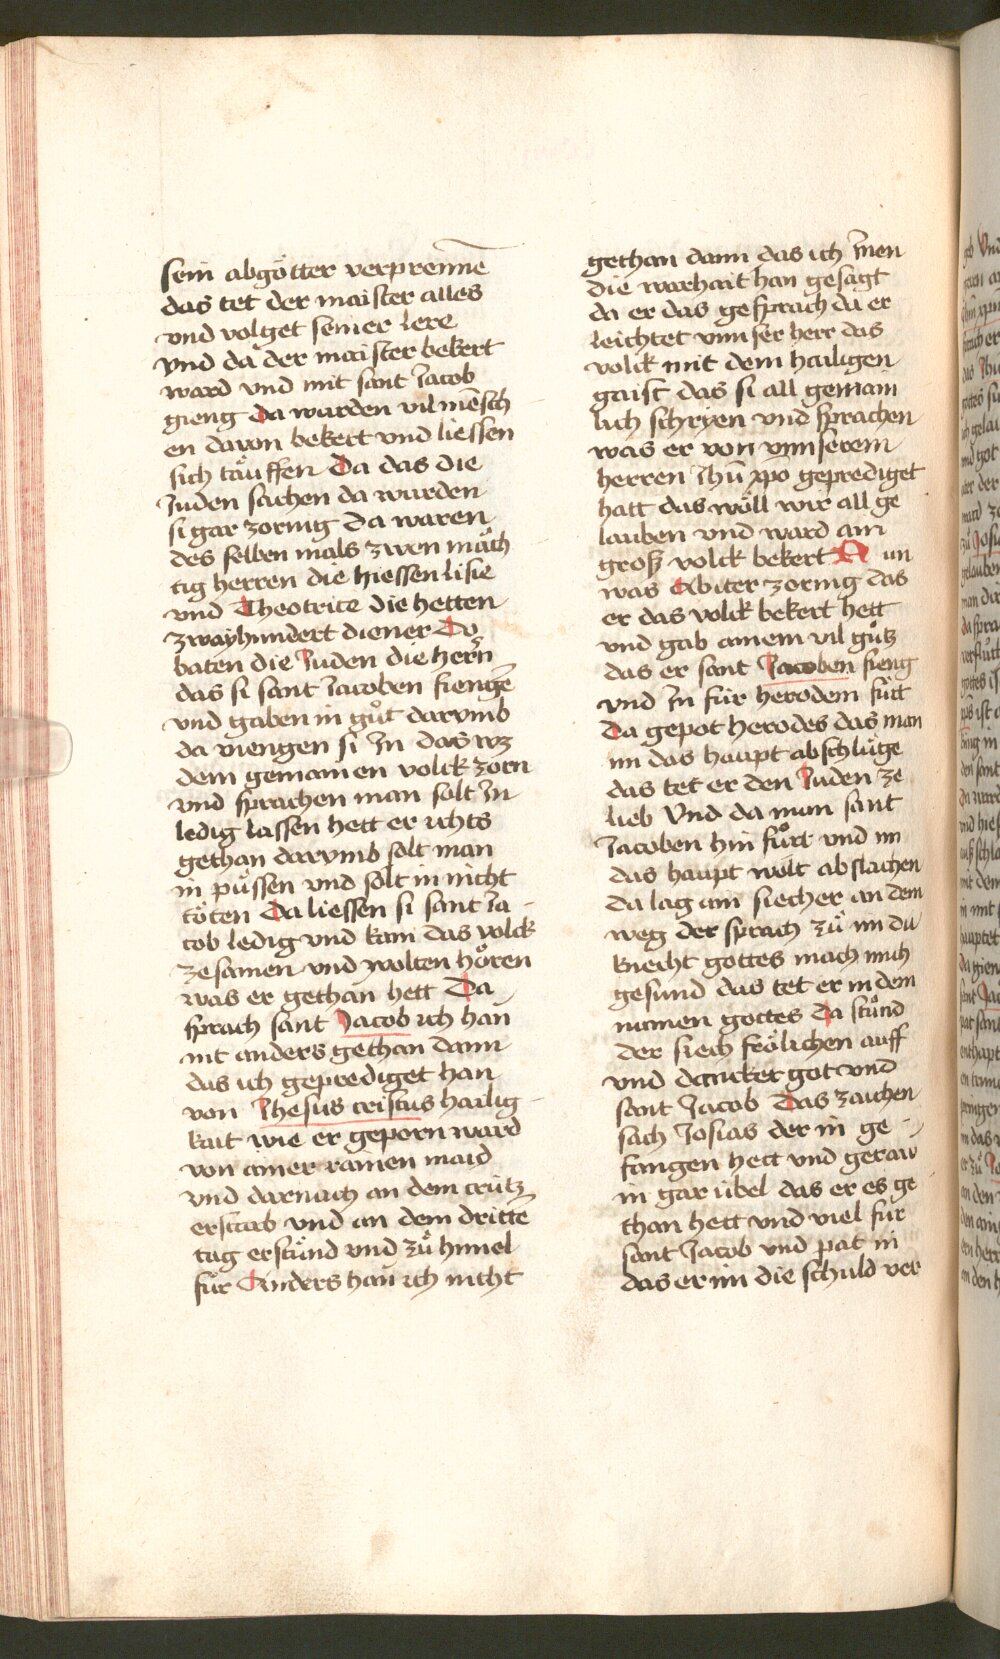 sein abgötter verprenn̄e
das tet der maister alles
vnd volget seiner lere
vnd da der maister bekert
ward vnd mit sant Jacob
gieng Da wurden vil mēsch
en davon bekert vnd liessen
sich täuffen Da das die
Juden sachen da wurden
si gar zornig Da waren
des selben mals zwen mäch
tig herren die hiessen lisie
vnd Theotrite die hetten
zwayhundert diener Do
baten die Juden die hern̄
das si sant Jacoben fiengē
vnd gaben in gůt darvmb
da viengen si In das wz
dem gemainen volck zorn
vnd sprachen man solt In
ledig lassen hett er ichts
gethan darvmb solt man
in püssen vnd solt in nicht
töten Da liessen si sant Ja-
cob ledig vnd kam das volck
zesamen vnd wolten hören
was er gethan hett Da
sprach sant Jacob ich han
nit anders gethan dann
das ich geprediget han
von Jhesus cristus hailig-
kait wie er geporn ward
von ainer rainen maid
vnd darnach an dem crütz
erstarb vnd an dem dritte
tag erstůnd vnd zů himel
für Anders han ich nicht
gethan dann das ich Jnen
die warhait han gesagt
da er das gesprach da er
leichtet vnnser herr das
volck mit dem hailigen
gaist das si all gemain
lich schryen vnd sprachen
was er von vnnserem
herren Jhū xpo geprediget
hatt das wöll wir all ge
lauben vnd ward ain
groß volck bekert Nun
was Abiter zornig das
er das volck bekert hett
vnd gab ainem vil gůtz
das er sant Jacoben fieng
vnd In für herodem fürt
Da gepot herodes das man
im das haupt abschlüge
das tet er den Juden ze
lieb Vnd da man sant
Jacoben hin fürt vnd im
das haupt wolt abslachen
da lag ain siecher an dem
weg der sprach zů im du
knecht gottes mach mich
gesund das tet er in dem
namen gottes Da stůnd
der siech frölichen auff
vnd dancket got vnd
sant Jacob Das zaichen
sach Josias der in ge-
fangen hett vnd geraw
in gar übel das er es ge
than hett vnd viel für
sant Jacob vnd pat in
das er im die schuld ver